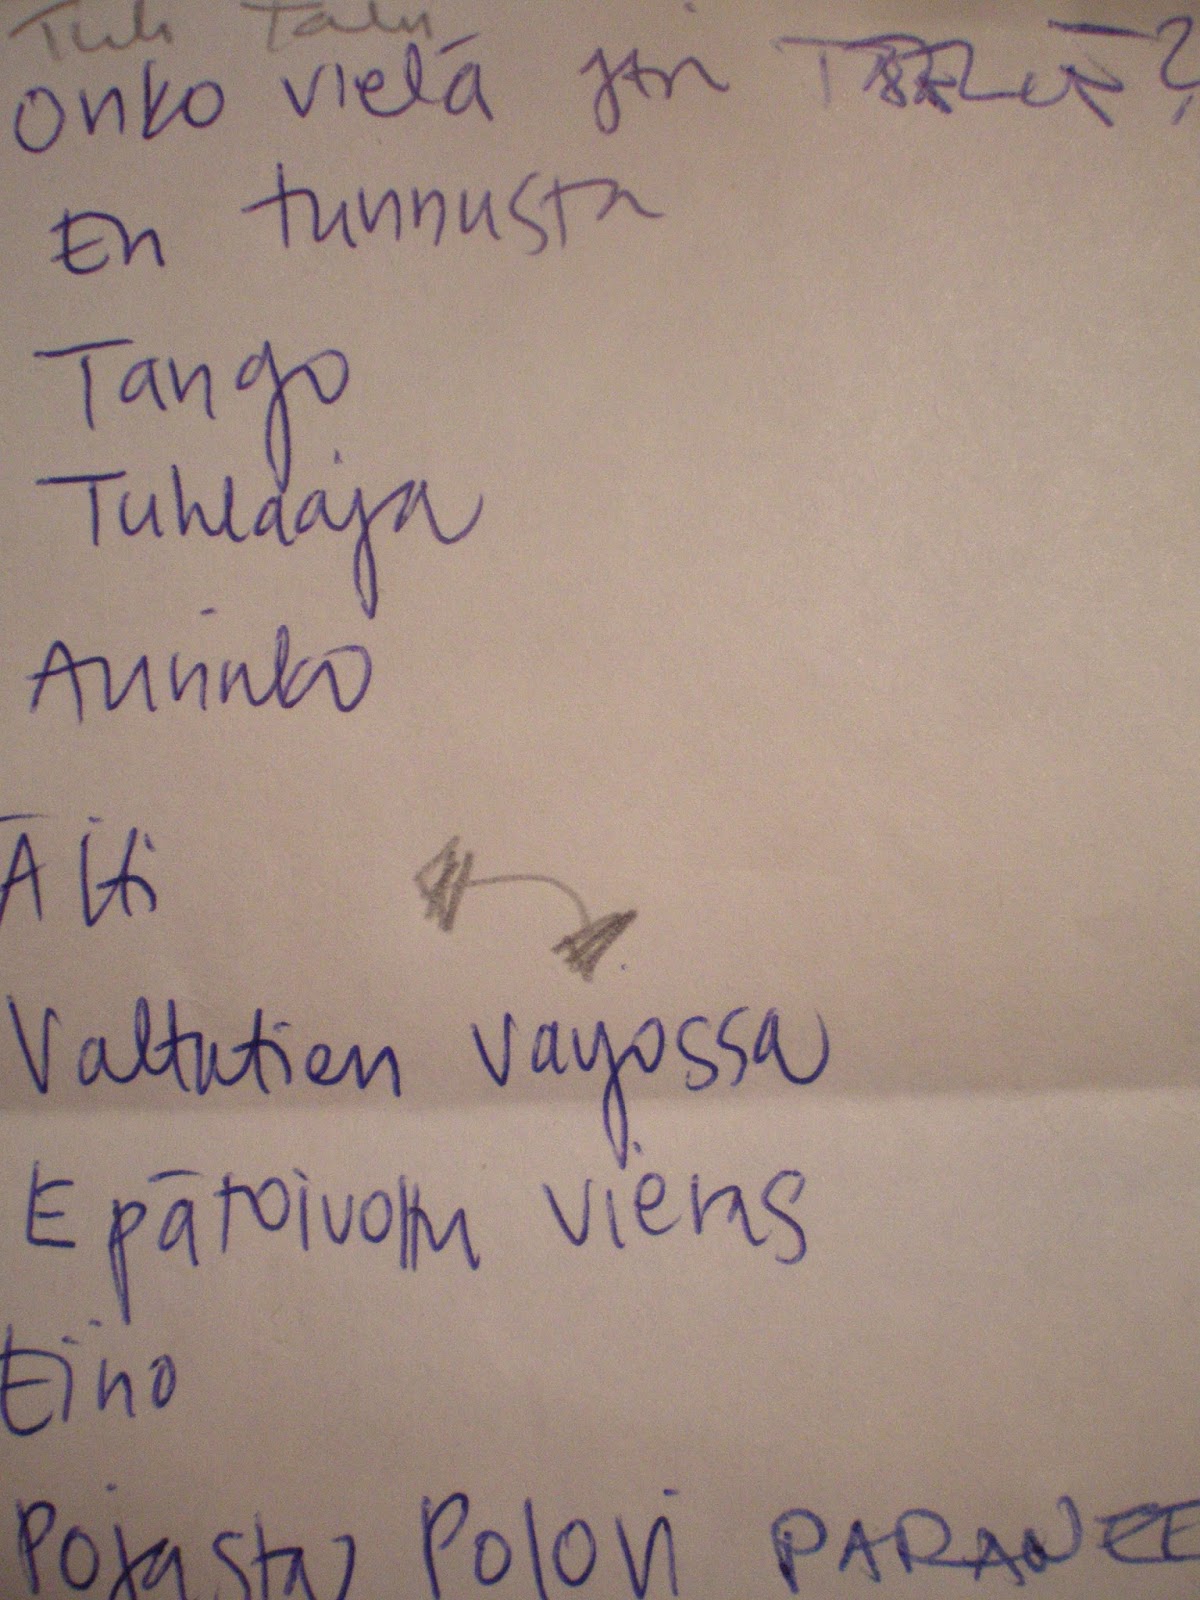 Tuli Talu
Onko vielä jän ?
En tunnusta
Tango
Tuhlaaja
Aurinko
Äiti
Valtatien varjossa
Epätoivottu vieras
Eino
Pojasta Polovi PARANEE